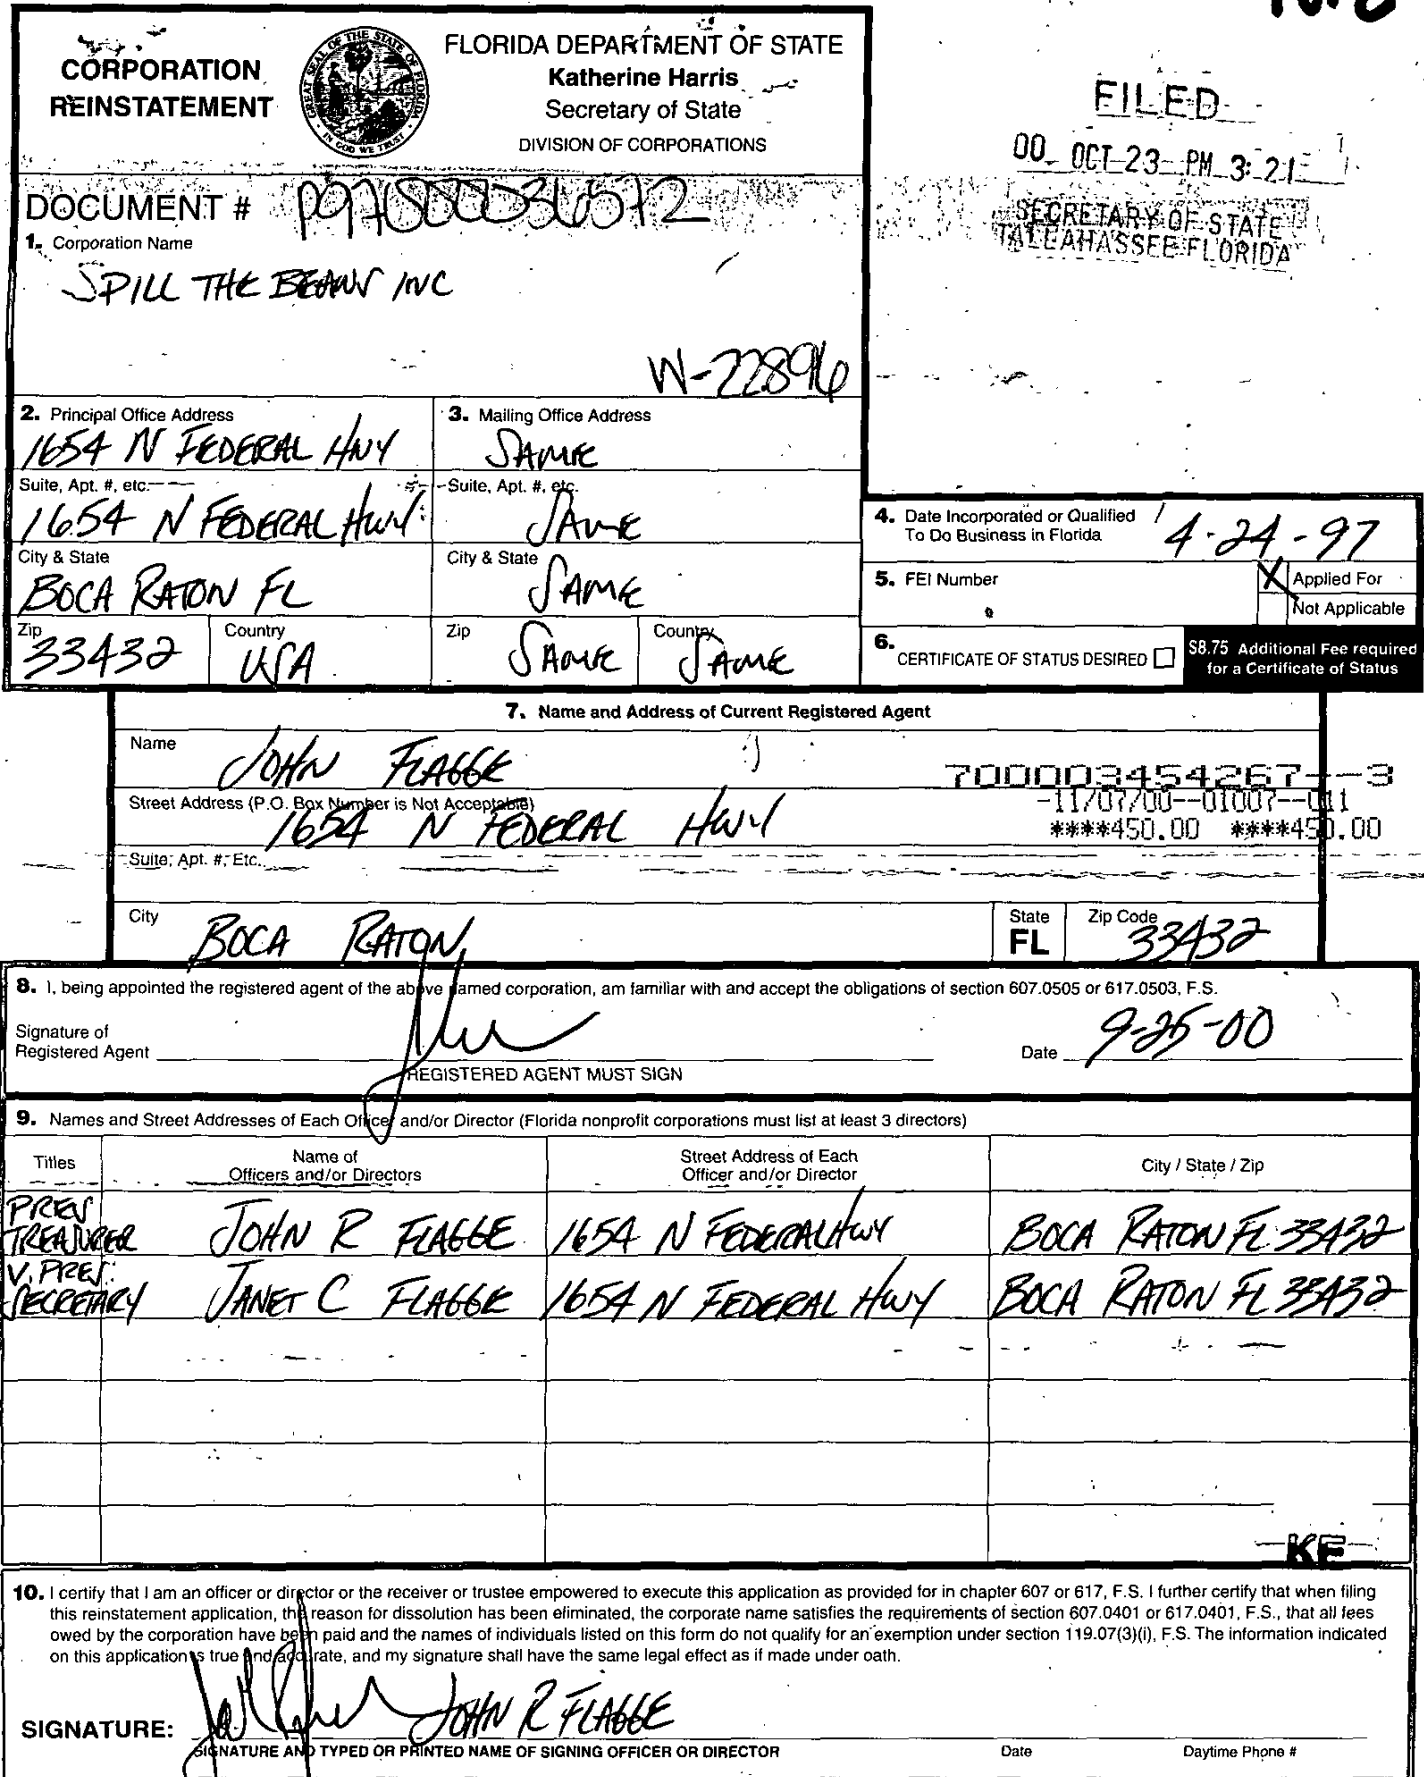 CORPORATION
REINSTATEMENT
GREAT SEAL OF THE STATE OF FLORIDA
IN GOD WE TRUST
FLORIDA DEPARTMENT OF STATE
Katherine Harris
Secretary of State
DIVISION OF CORPORATIONS
FILED
00 OCT 23 PM 3:21
SECRETARY OF STATE
TALLAHASSEE FLORIDA
DOCUMENT # P97000036572
1. Corporation Name
SPILL THE BEANS INC
W-22896
2. Principal Office Address
1654 N FEDERAL HWY
Suite, Apt. #, etc.
1654 N FEDERAL HWY
City & State
BOCA RATON FL
Zip
33432
Country
USA
3. Mailing Office Address
SAME
Suite, Apt. #, etc.
SAME
City & State
SAME
Zip
SAME
Country
SAME
4. Date Incorporated or Qualified
To Do Business in Florida
4-24-97
5. FEI Number
X Applied For
Not Applicable
6. CERTIFICATE OF STATUS DESIRED
$8.75 Additional Fee required
for a Certificate of Status
7. Name and Address of Current Registered Agent
Name
JOHN FLAGGE
700003454267--3
-11/07/00--01007--011
****450.00 ****450.00
Street Address (P.O. Box Number is Not Acceptable)
1654 N FEDERAL HWY
Suite, Apt. #, Etc.
City
BOCA RATON
State
FL
Zip Code
33432
8. I, being appointed the registered agent of the above named corporation, am familiar with and accept the obligations of section 607.0505 or 617.0503, F.S.
Signature of
Registered Agent
Date 9-25-00
REGISTERED AGENT MUST SIGN
9. Names and Street Addresses of Each Officer and/or Director (Florida nonprofit corporations must list at least 3 directors)
Titles
Name of
Officers and/or Directors
Street Address of Each
Officer and/or Director
City / State / Zip
PRES
TREASURER JOHN R FLAGGE 1654 N FEDERAL HWY BOCA RATON FL 33432
V. PRES.
SECRETARY JANET C FLAGGE 1654 N FEDERAL HWY BOCA RATON FL 33432
KE
10. I certify that I am an officer or director or the receiver or trustee empowered to execute this application as provided for in chapter 607 or 617, F.S. I further certify that when filing
this reinstatement application, the reason for dissolution has been eliminated, the corporate name satisfies the requirements of section 607.0401 or 617.0401, F.S., that all fees
owed by the corporation have been paid and the names of individuals listed on this form do not qualify for an exemption under section 119.07(3)(i), F.S. The information indicated
on this application is true and accurate, and my signature shall have the same legal effect as if made under oath.
SIGNATURE: JOHN R FLAGGE
SIGNATURE AND TYPED OR PRINTED NAME OF SIGNING OFFICER OR DIRECTOR
Date
Daytime Phone #